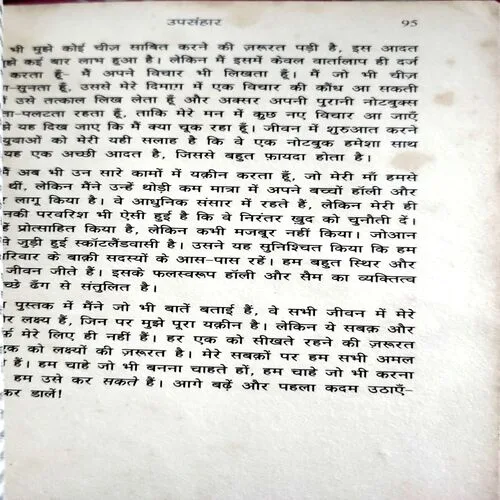 उपसंहार 95
भी मुझे कोई चीज़ साबित करने की ज़रूरत पड़ी है, इस आदत
झे कई बार लाभ हुआ है। लेकिन मैं इसमें केवल वार्तालाप ही दर्ज
करता हूँ– मैं अपने विचार भी लिखता हूँ। मैं जो भी चीज़
-सुनता हूँ, उससे मेरे दिमाग़ में एक विचार की कौंध आ सकती
उसे तत्काल लिख लेता हूँ और अक्सर अपनी पुरानी नोटबुक्स
ता-पलटता रहता हूँ, ताकि मेरे मन में कुछ नए विचार आ जाएँ
झे यह दिख जाए कि मैं क्या चूक रहा हूँ। जीवन में शुरुआत करने
युवाओं को मेरी यही सलाह है कि वे एक नोटबुक हमेशा साथ
यह एक अच्छी आदत है, जिससे बहुत फ़ायदा होता है।
मैं अब भी उन सारे कामों में यक़ीन करता हूँ, जो मेरी माँ हमसे
थीं, लेकिन मैंने उन्हें थोड़ी कम मात्रा में अपने बच्चों हॉली और
लागू किया है। वे आधुनिक संसार में रहते हैं, लेकिन मेरी ही
नकी परवरिश भी ऐसी हुई है कि वे निरंतर ख़ुद को चुनौती दें।
हें प्रोत्साहित किया है, लेकिन कभी मजबूर नहीं किया। जोआन
से जुड़ी हुई स्कॉटलैंडवासी है। उसने यह सुनिश्चित किया कि हम
रिवार के बाक़ी सदस्यों के आस-पास रहें। हम बहुत स्थिर और
जीवन जीते हैं। इसके फलस्वरूप हॉली और सैम का व्यक्तित्व
च्छे ढंग से संतुलित है।
पुस्तक में मैंने जो भी बातें बताई हैं, वे सभी जीवन में मेरे
र लक्ष्य हैं, जिन पर मुझे पूरा यक़ीन है। लेकिन ये सबक़ और
र्फ़ मेरे लिए ही नहीं हैं। हर एक को सीखते रहने की ज़रूरत
एक को लक्ष्यों की ज़रूरत है। मेरे सबक़ों पर हम सभी अमल
हैं। हम चाहे जो भी बनना चाहते हों, हम चाहे जो भी करना
हम उसे कर सकते हैं। आगे बढ़ें और पहला कदम उठाएँ–
कर डालें!